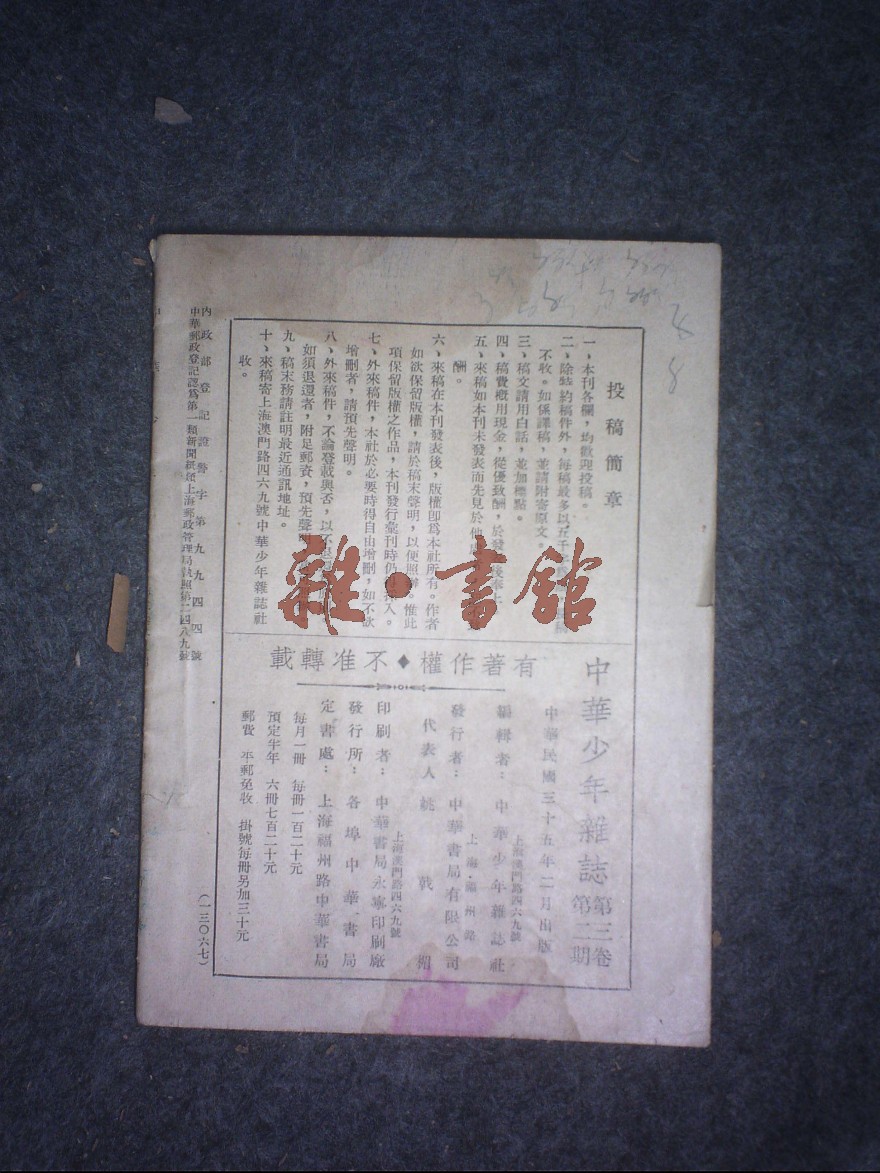 投稿簡章
一、本刊各欄，均歡迎投稿。
二、除特約稿件外，每稿最多以五千
不收。如係譯稿，並請附寄原文。
三、稿文請用白話，並加標點。
四、稿費概用現金，從優致酬，於發
五、來稿如本刊未發表而先見於他
酬。
六、來稿在本刊發表後，版權卽爲本社所有。作者
如欲保留版權，請於稿末聲明，以便照辦。惟此
項保留版權之作品，本刊發行彙刊時仍得採入。
七、外來稿件，本社於必要時得自由增刪，如不欲
增刪者，請預先聲明。
八、外來稿件，不論登載與否，以不退
如須退還者，附足郵資，預先聲明
九、稿末務請註明最近通訊地址。
十、來稿寄上海澳門路四六九號中華少年雜誌社
收。
中華少年雜誌 第三卷第二期
有著作權◆不准轉載
中華民國三十五年二月出版
上海澳門路四六九號
編輯者：中華少年雜誌社
上海·福州路
發行者：中華書局有限公司
代表人 姚戟楣
上海澳門路四六九號
印刷者：中華書局永寧印刷廠
發行所：各埠中華書局
定書處：上海福州路中華書局
每月一冊 每冊一百二十元
預定半年 六冊七百二十元
郵費 平郵免收 掛號每冊另加三十元
內政部登記證警字第九九四四號
中華郵政登記認爲第一類新聞紙類上海郵政管理局執照第二四八九號
（一三〇六七）
雜·書館